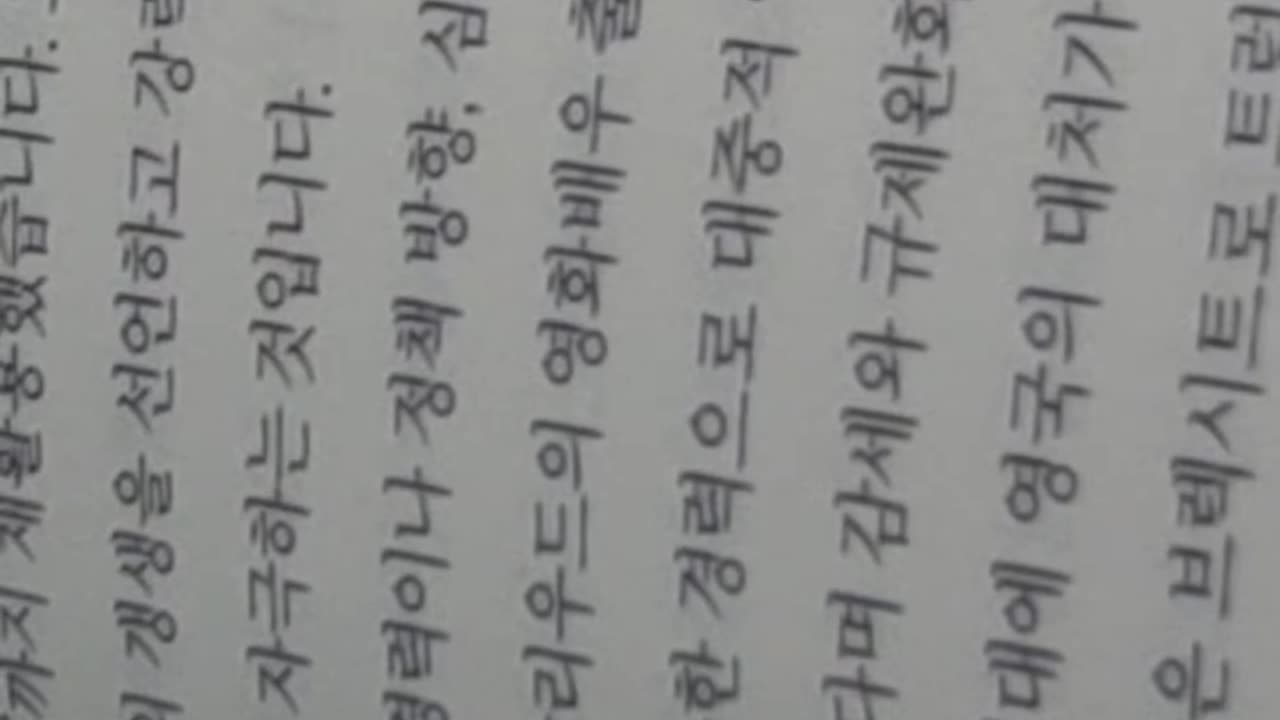 까지 재활용했습니다.
의 갱생을 선언하고 강
자극하는 것입니다.
경력이나 정책 방향, 심
리우드의 영화배우 출
한 경력으로 대중적
다며 감세와 규제완화
대에 영국의 대처가
은 브렉시트로 트럼